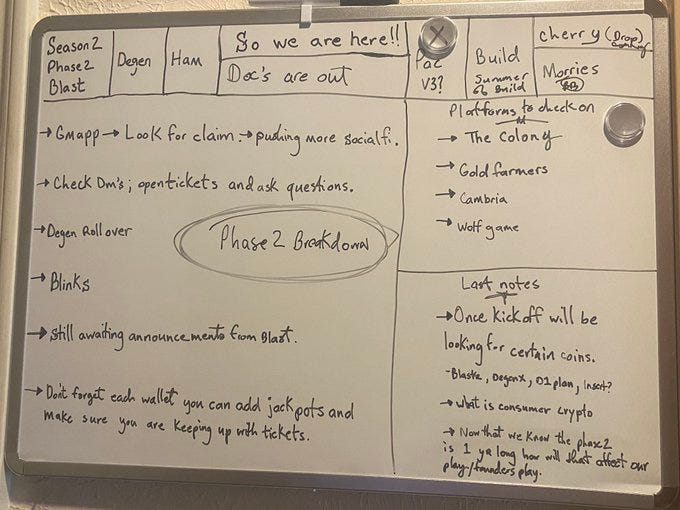 Season 2
Phase 2
Blast
Degen
Ham
So we are here!!
Doc's are out
Pac
V3?
Build
Summer
of Build
cherry (Drop)
coming
Morries
→ Gmapp → Look for claim. → pushing more socialfi.
→ Check Dm's ; open tickets and ask questions.
→ Degen Roll over
→ Blinks
→ Still awaiting announcements from Blast.
→ Don't forget each wallet you can add jackpots and
make sure you are keeping up with tickets.
Phase 2 Breakdown
Platforms to check on
→ The Colony
→ Gold farmers
→ Cambria
→ Wolf game
Last notes
→ Once Kickoff will be
looking for certain coins.
- Blaste, DegenX, D1 plan, Insrt?
→ what is consumer crypto
→ Now that we know the phase 2
is 1 yr long how will that affect our
play/founders play.